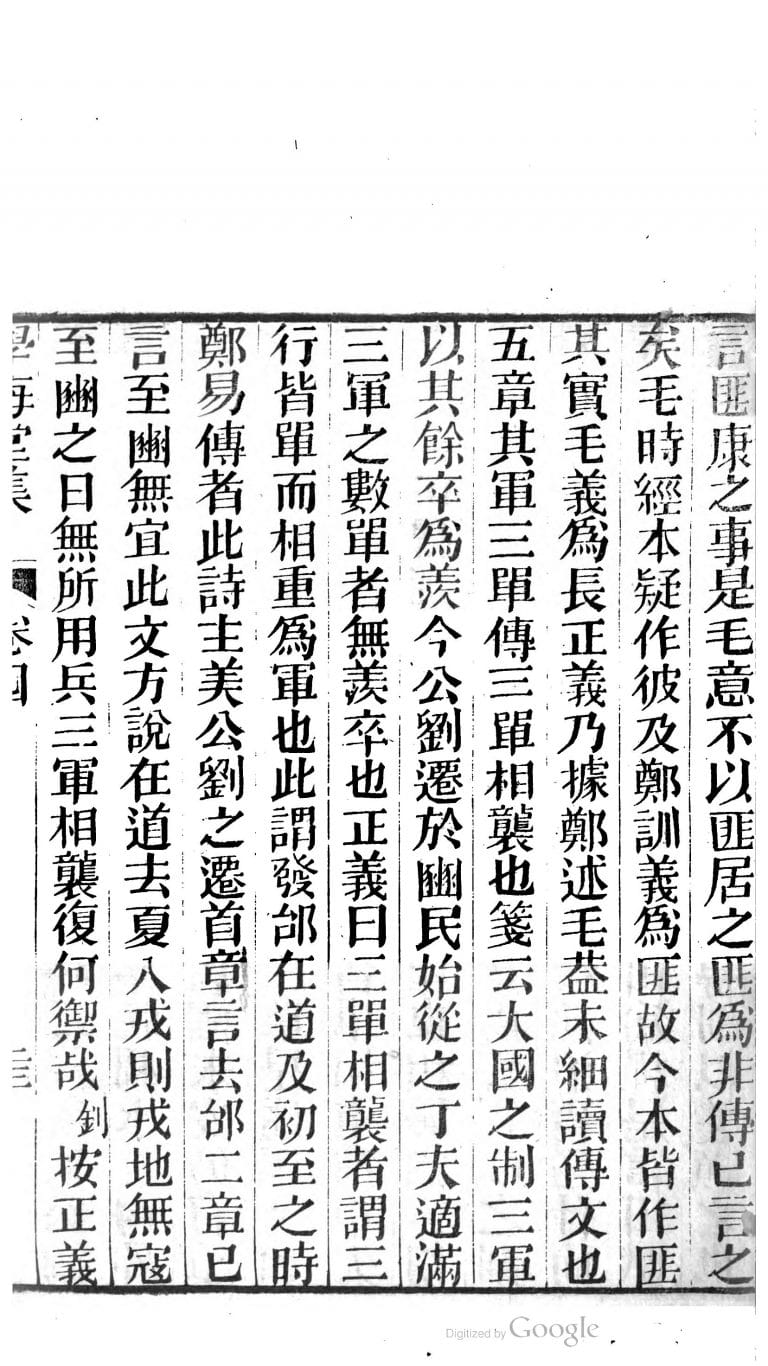 言匪康之事是毛意不以匪居之匪爲非傳已言之
矣毛時經本疑作彼及鄭訓義爲匪故今本皆作匪
其實毛義爲長正義乃據鄭述毛葢未細讀傳文也
五章其軍三單傳三單相襲也箋云大國之制三軍
以其餘卒爲羨今公劉遷於豳民始從之丁夫適滿
三軍之數單者無羨卒也正義曰三單相襲者謂三
行皆單而相重爲軍也此謂發邰在道及初至之時
鄭易傳者此詩主美公劉之遷首章言去邰二章已
言至豳無宜此文方說在道去夏入戎則戎地無寇
至豳之日無所用兵三軍相襲復何禦哉釗按正義
學海堂集 卷四 三
Digitized by Google